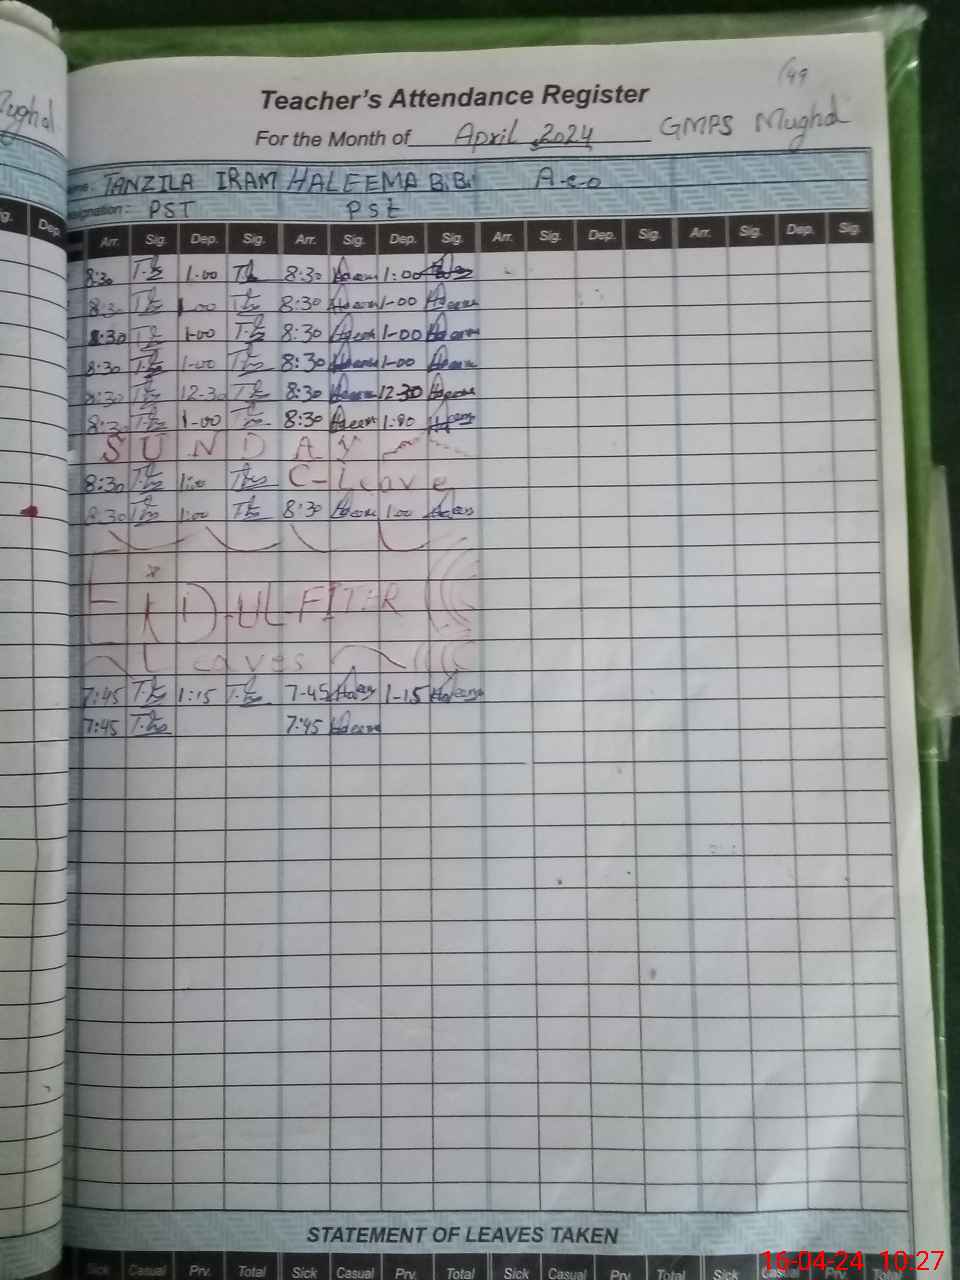 49
Teacher's Attendance Register
For the Month of April, 2024 GMPS Mughal
Mughal
TANZILA IRAM HALEEMA BiBi A.e.o
PST Pst
Dep. Arr. Sig. Dep. Sig. Arr. Sig. Dep. Sig. Arr. Sig. Dep. Sig. Arr. Sig. Dep. Sig.
8:30 1.00 8:30 1:00
8:30 1.00 8:30 1-00
8:30 1-00 8:30 1-00
8:30 1-00 8:30 1-00
8:30 12-30 8:30 12-30
8:30 1-00 8:30 1:00
SUNDAY
8:30 1:00 C-Leave
8:30 1:00 8:30 1:00
EID-UL-FITAR
Leaves
7:45 1:15 7-45 1-15
7:45 7:45
STATEMENT OF LEAVES TAKEN
Sick Casual Prv. Total Sick Casual Prv. Total Sick Casual Prv. Total Sick Casual Prv. Total
16-04-24 10:27